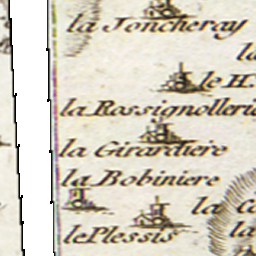 la Joncheray
la
le H.
la Rossignollerie
la Girardiere
la Bobiniere
la
le Plessis
la